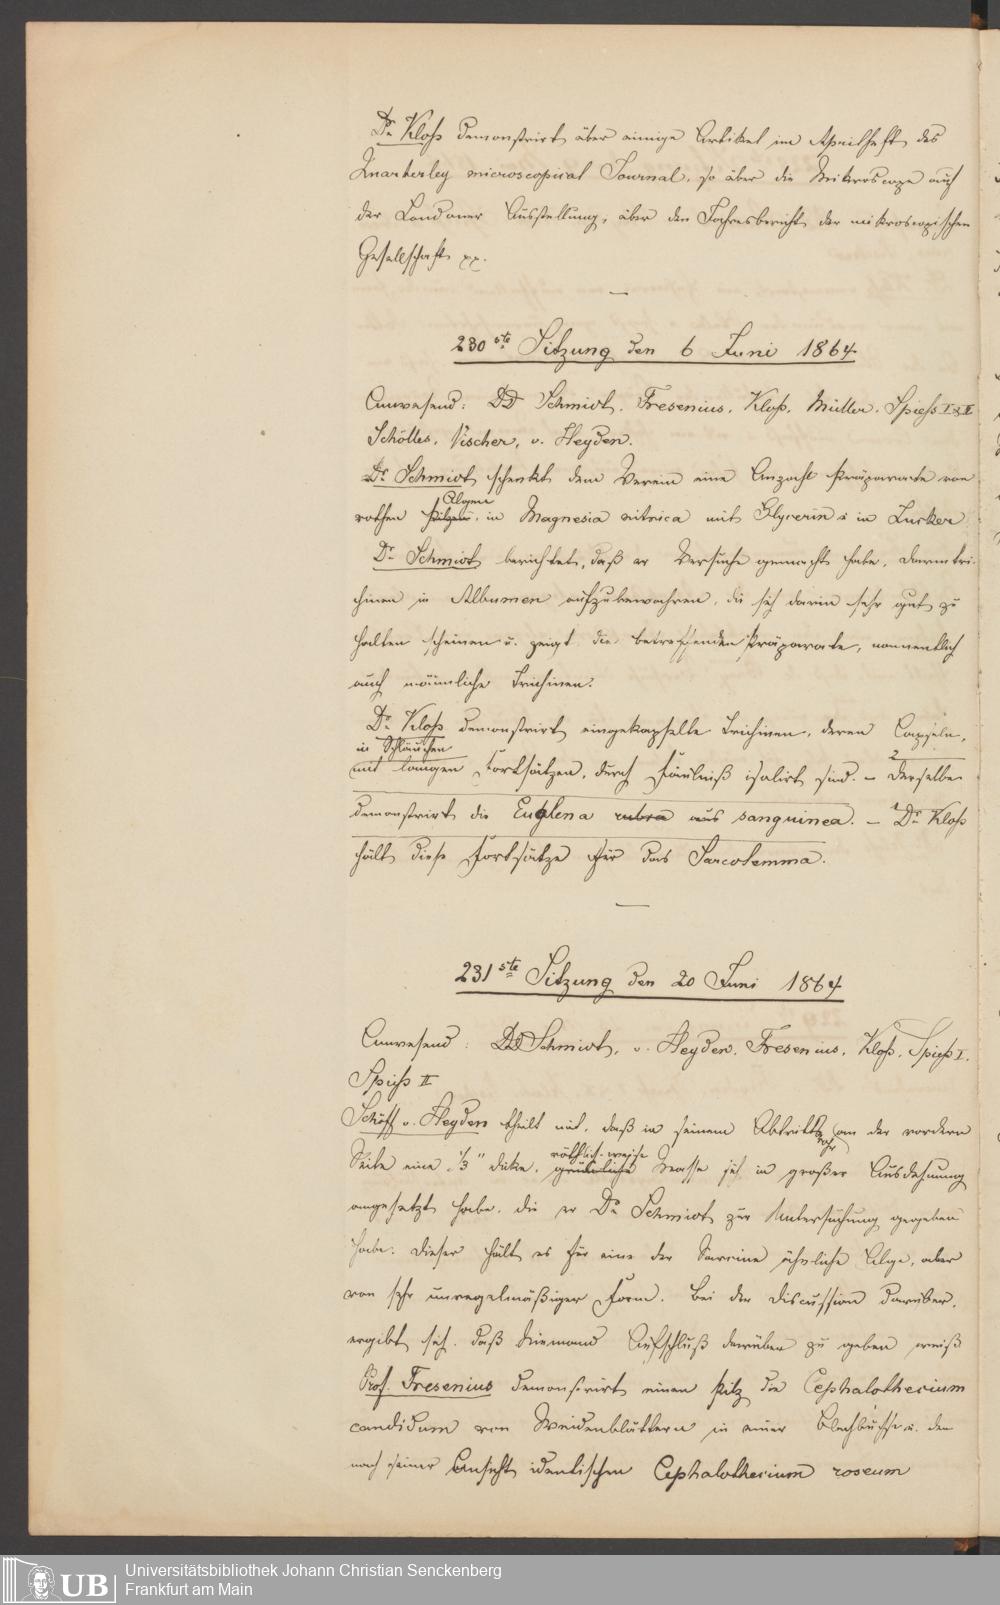 Dr Kloß demonstrirt über einige Artikel im Aprilheft des
Quarterley microscopical Journal, so über die Mikroscope auf
der Londoner Ausstellung, über den Jahresbericht der mikroscopischen
Gesellschaft pp.
230ste Sitzung den 6 Juni 1864.
Anwesend: DD Schmidt, Fresenius, Kloß, Müller, Spiess I & II
Schölles, Vischer, v. Heyden.
Dr Schmidt schenkt dem Verein eine Anzahl Präparate von
Algen
rothen Pilzen, in Magnesia nitrica mit Glycerin u in Zucker
Dr Schmidt berichtet, daß er Versuche gemacht habe, Darmtri-
chinen in Albumen aufzubewahren, die sich darin sehr gut zu
halten scheinen u. zeigt die betreffenden Präparate, namentlich
auch männliche Trichinen.
Dr Kloß demonstrirt eingekapselte Trichinen, deren Capseln,
in Schläuchen
mit langen Fortsätzen, durch Fäulniß isolirt sind. – 2 Derselbe
demonstrirt die Euglena rubra aus sanguinea. – 1 Dr Kloß
hält diese Fortsätze für das Sarcolemma.
231ste Sitzung den 20 Juni 1864
Anwesend: DD Schmidt, v. Heyden, Fresenius, Kloß, Spieß I.
Spieß II
Schöff v. Heyden theilt mit, daß in seinem Abtritts an der vordern
rohr
röthlich-weise
Seite eine 1/3" dicke, grünliche Masse sich in großer Ausdehnung
angesetzt habe, die er Dr Schmidt zur Untersuchung gegeben
habe. Dieser hält es für eine der Sarcine ähnliche Alge, aber
von sehr unregelmäßiger Form. Bei der Discussion darüber,
ergibt sich, daß Niemand Aufschluß darüber zu geben weiß
Prof. Fresenius demonstrirt einen Pilz die Cephalothecium
candidum von Weidenblättern in einer Blechbüchse u. den
nach seiner Ansicht identischen Cephalothecium roseum
Universitätsbibliothek Johann Christian Senckenberg
UB Frankfurt am Main